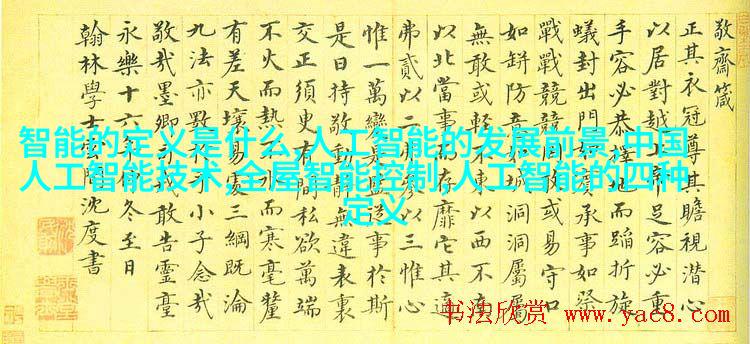 智能的定义是什么,人工智能的发展前景,中国
人工智能技术,全屋智能控制,人工智能的四种
定义
敬齋箴
正其衣冠尊其瞻視潛心
以居對越上足容必重
手容必恭擇地而蹈折旋
蟻封出門如賓承事如祭
戰戰兢兢罔或易守口
如缾防意城洞洞屬屬
無敢或輕不東以西不南
以北當事而存靡它其適
弗貳以二弗參以三惟心
惟一萬變是監從事於斯
是曰持敬動靜無違表裏
交正須臾有間私欲萬端
不火而熱不冰而寒毫釐
有差天壤易處三綱既淪
九法亦斁於乎小子念哉
敬哉墨卿司戒敢告靈臺
永樂十六年仲冬至日
翰林學士雲間沈度書
书法欣赏 www.yac8.com